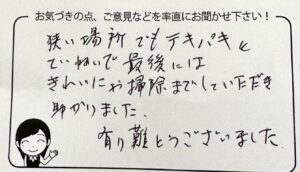 お気づきの点、ご意見などを率直にお聞かせ下さい！
狭い場所でもテキパキと
ていねいで最後には
きれいにお掃除までしていただき
助かりました、
有り難とうございました